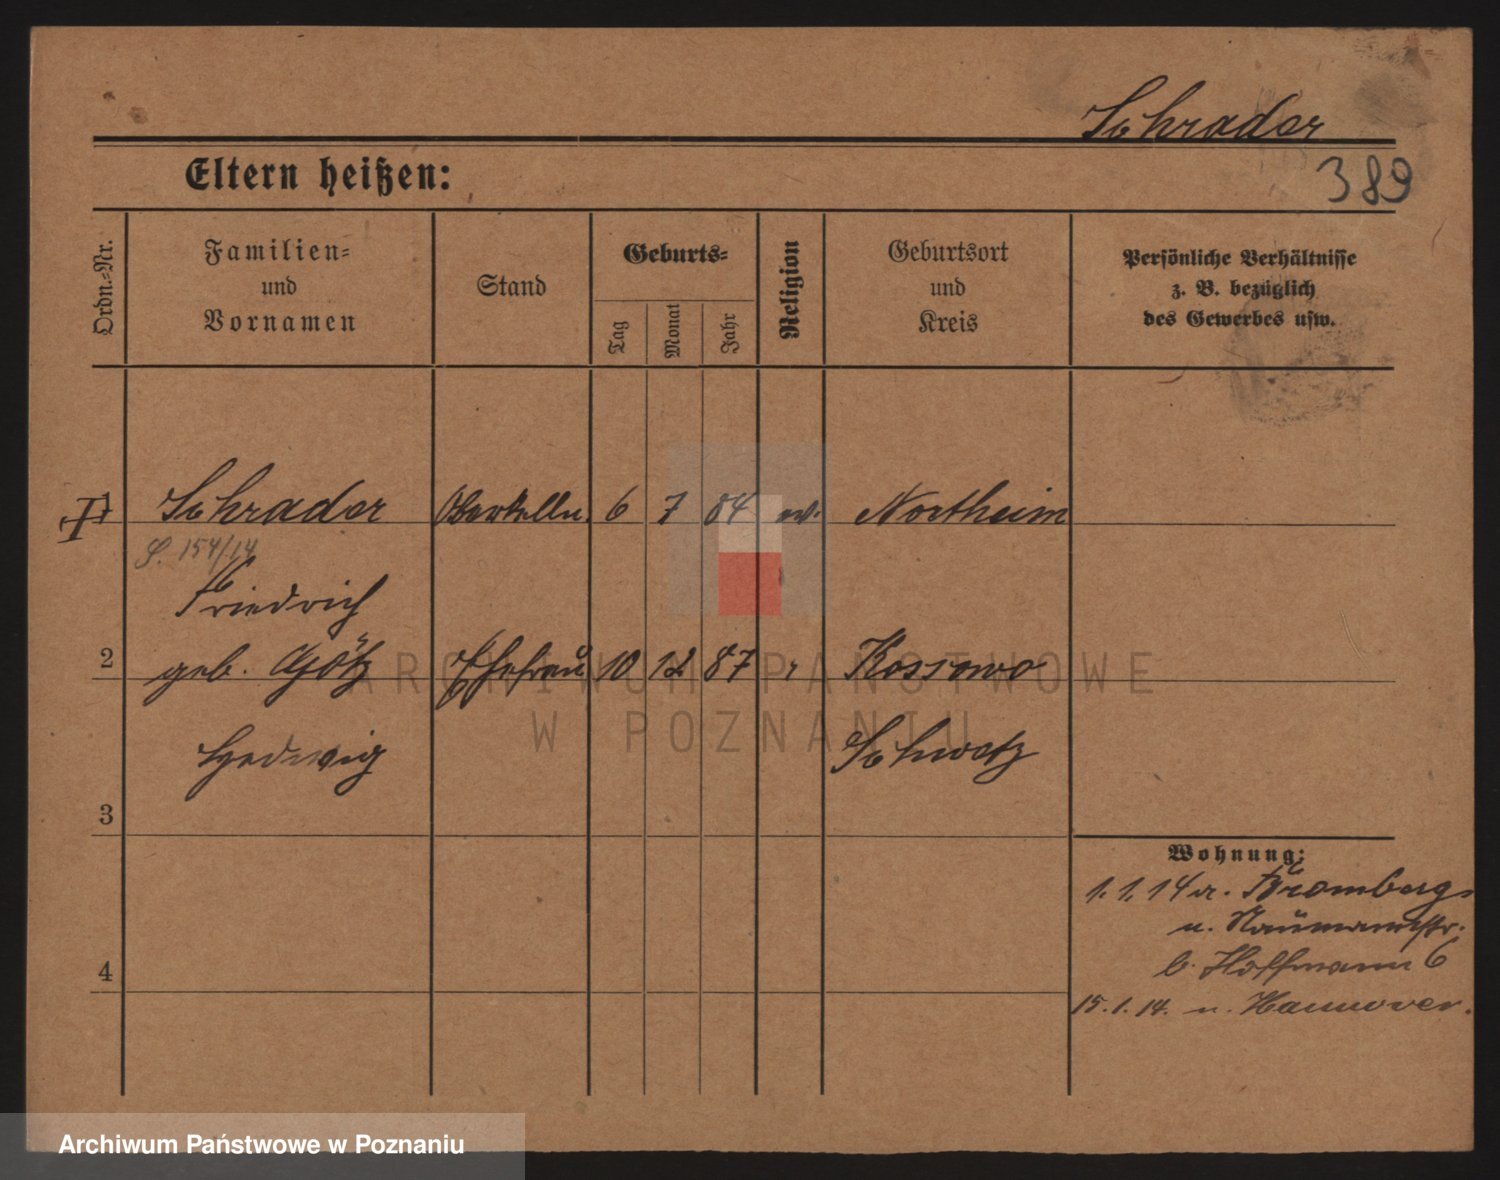 Schrader
Eltern heißen:
389
Ordn.-Nr.
Familien-
und
Vornamen
Stand
Geburts-
Tag
Monat
Jahr
Religion
Geburtsort
und
Kreis
Persönliche Verhältnisse
z. B. bezüglich
des Gewerbes usw.
1 Schrader Oberkelln. 6 7 84 ev. Northeim
S. 154/14
Friedrich
2 geb. Götz Ehefrau 10 12 87 " Kossowo
Hedwig Schwetz
3
Wohnung:
1.1.14 a. Bromberg
n. Naumannstr.
b. Hoffmann 6
15.1.14. n. Hannover.
4
ARCHIWUM PAŃSTWOWE
W POZNANIU
Archiwum Państwowe w Poznaniu